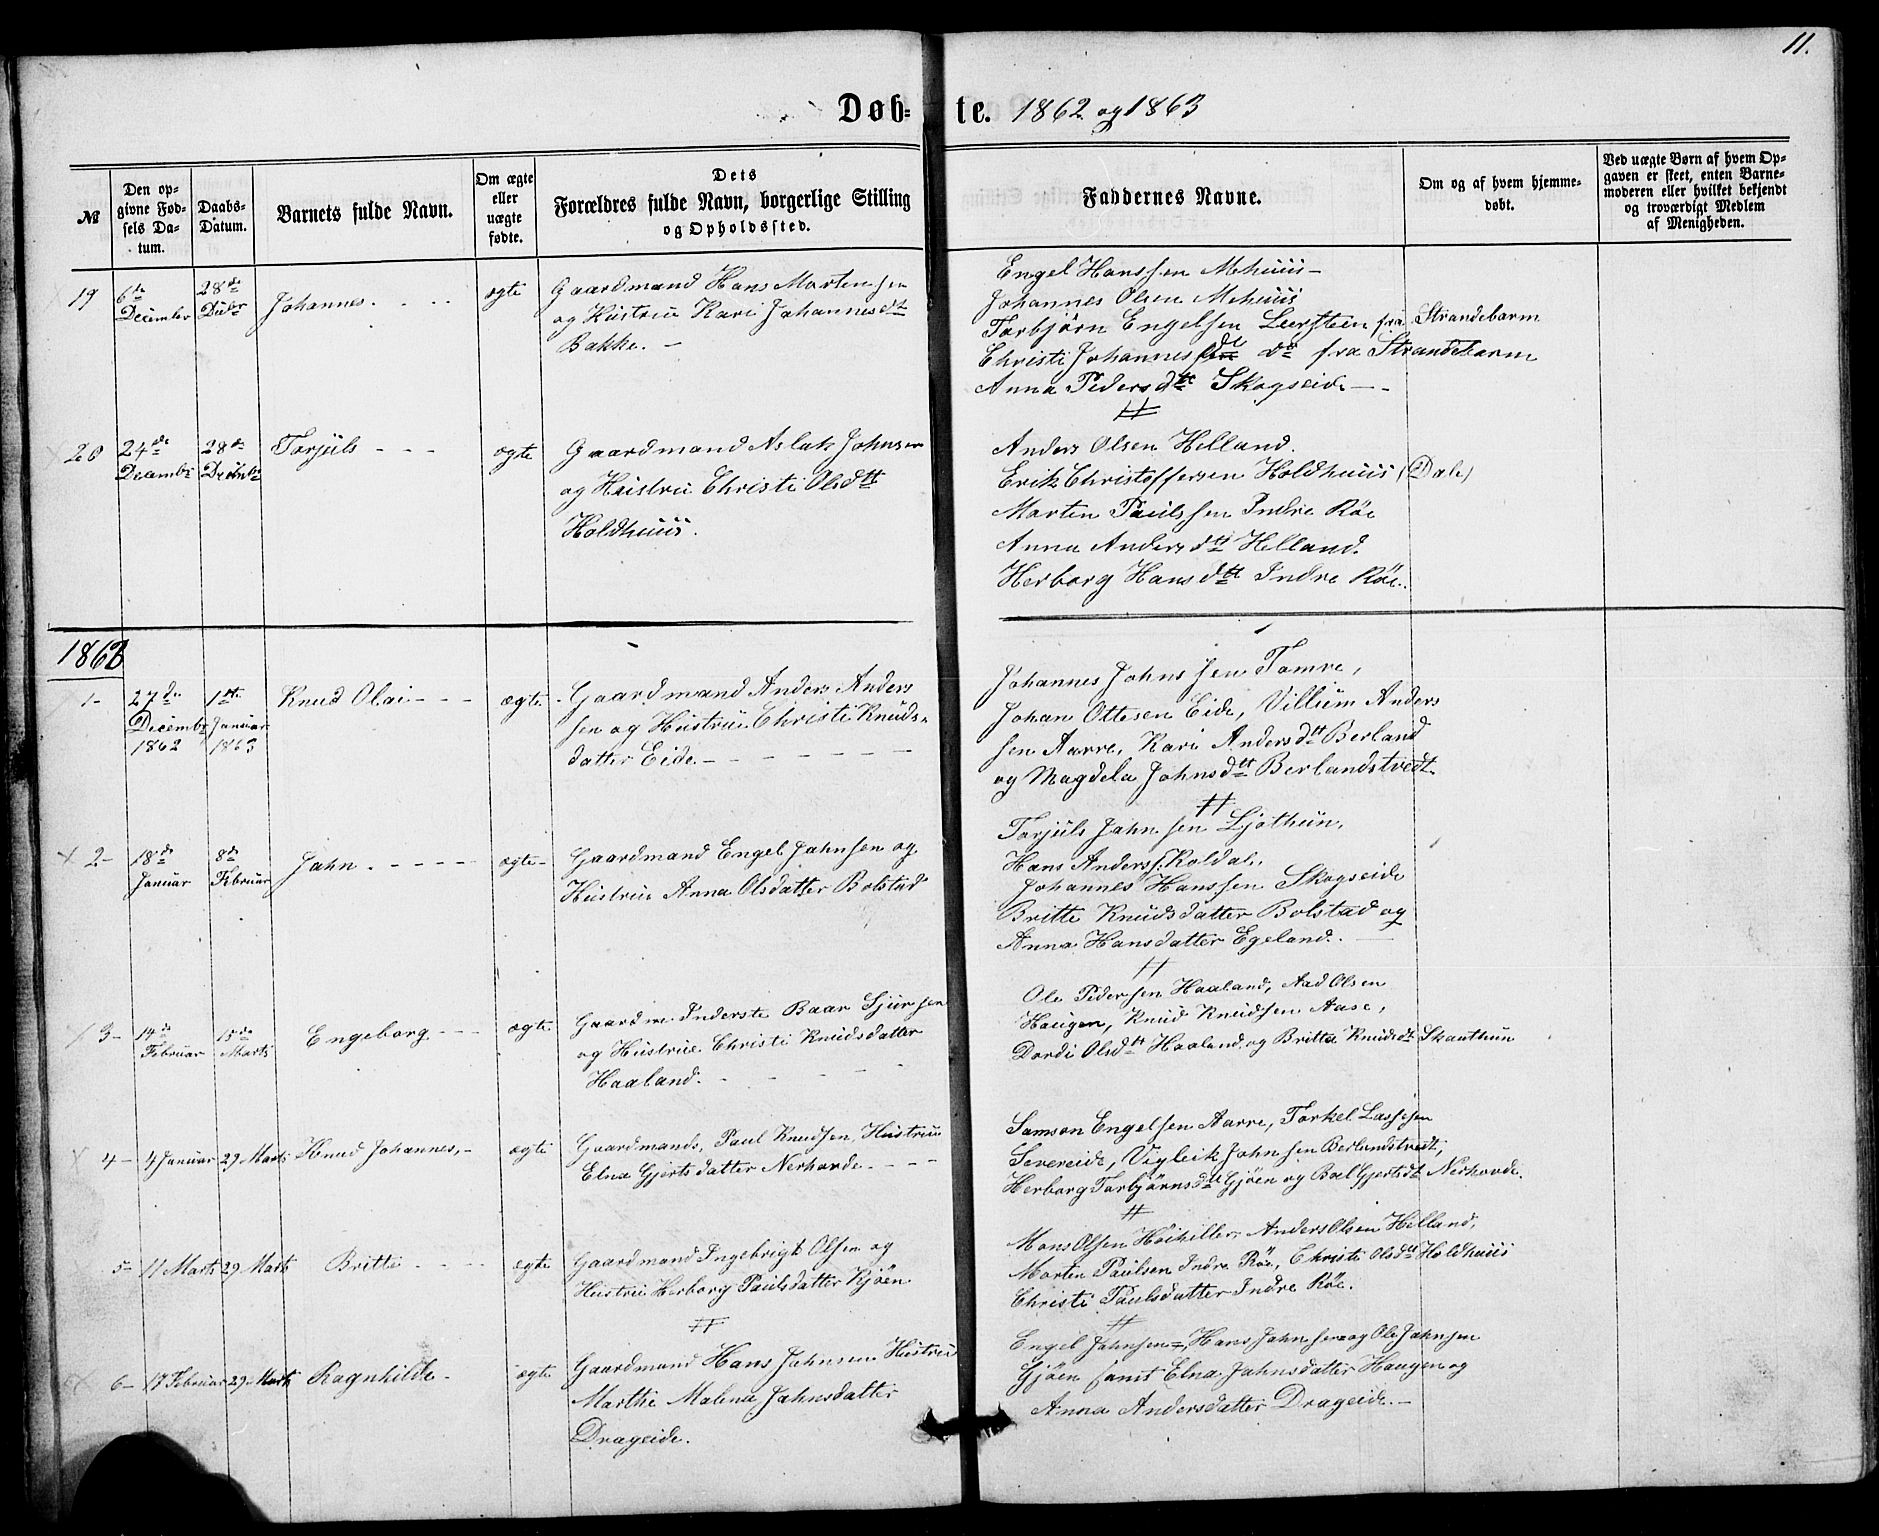 11.
Døb- te. 1862 og 1863
№
Den op-
givne Fød-
sels Da-
tum.
Daabs-
Datum.
Barnets fulde Navn.
Om ægte
eller
uægte
fødte.
Dets
Forældres fulde Navn, borgerlige Stilling
og Opholdssted.
Faddernes Navne.
Om og af hvem hjemme-
døbt.
Ved uægte Børn af hvem Op-
gaven er skeet, enten Barne-
moderen eller hvilket bekjendt
og troværdigt Medlem
af Menigheden.
19
6te
December
28de
Decbr
Johannes
ægte
Gaardmand Hans Mortensen
og Hustrue Kari Johannesdtt
Bakke. –
Engel Hanssen Mehuus –
Johannes Olsen Mehuus
Torbjørn Engelsen Leersteen fra Strandebarm
Christi Johannes do fra Strandebarm
Anna Pedersdtt Skogseide –
20
24de
Decembr
28de
Decembr
Torjuls
ægte
Gaardmand Aslak Johnsen
og Hustrue Christi Olsdtt
Holdhuus.
Anders Olsen Helland.
Erik Christoffersen Holdhuus (Dale)
Morten Paulssen Indre Røe
Anna Andersdtt Helland.
Herborg Hansdtt Indre Røe.
1863
1-
27de
Decembr
1862
1ste
Januar
1863
Knud Olai
ægte
Gaardmand Anders Anders
sen og Hustrue Christi Knuds-
datter Eide –
Johannes Johnssen Tomre,
Johan Ottesen Eide, Villum Anders
sen Aarre, Kari Andersdtt Berland
og Magdela Johnsdtt Berlandstvedt
2-
18de
Januar
8de
Februar
Jahn
ægte
Gaardmand Engel Jahnsen og
Hustrue Anna Olsdatter Bolstad
Torjuls Jahnsen Ljothun,
Hans Anderss. Koldal,
Johannes Hanssen Skogseide
Britte Knudsdatter Bolstad og
Anna Hansdatter Egeland. –
3-
14de
Februar
15de
Marts
Engeborg
ægte
Gaardm. Inderste Baar Sjursen
og Hustrue Christi Knudsdatter
Haaland.
Ole Pedersen Haaland, Aad Olsen
Haugen, Knud Knudsen Aase,
Dordi Olsdtt Haaland og Britta Knudsdt Skauthun
4-
4 Januar
29 Marts
Knud Johannes,-
ægte
Gaardmands, Paul Knudsen, Hustrue
Elna Gjertsdatter Nerhovde
Samson Engelsen Aarre, Torkel Lassesen
Severeide, Vigleik Johnsen Berlandstvedt,
Herborg Torbjørnsdtt Gjøen og Boel Gjertsdt Nerhovde.
5-
11 Marts
29 Marts
Britte
ægte
Gaardmand Ingebrigt Olsen og
Hustrue Herborg Paulsdatter Kjøen
Mons Olsen Høihiller, Anders Olsen Helland,
Morten Paulsen Indre Røe, Christi Olsdtt Holdhuus
Christi Paulsdatter Indre Røe.
6-
17 Februar
29 Marts
Ragnhilde
ægte
Gaardmand Hans Jahnsen Hustrue
Marthe Malena Jahnsdatter
Drageide.
Engel Jahnsen, Hans Jahnsen og Ole Jahnsen
Gjøen samt Elna Jahnsdatter Haugen og
Anna Andersdatter Drageide. –